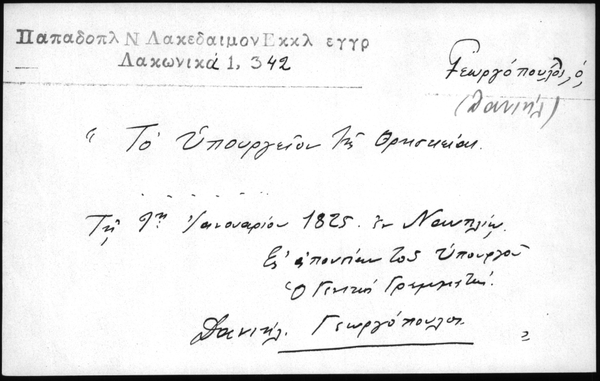 Παπαδοπλ Ν Λακεδαιμον Εκκλ εγγρ
Λακωνικά 1, 342
Γεωργόπουλος, ὁ,
(Δανιήλ)
“ Τὸ Ὑπουργεῖον τῆς Θρησκείας.
. . . . . . . .
Τῇ 9ῃ Ἰανουαρίου 1825. ἐν Ναυπλίῳ.
Ἐξ ἀπουσίας τοῦ Ὑπουργοῦ
Ὁ Γενικὸς Γραμματεύς.
Δανιήλ. Γεωργόπουλος.